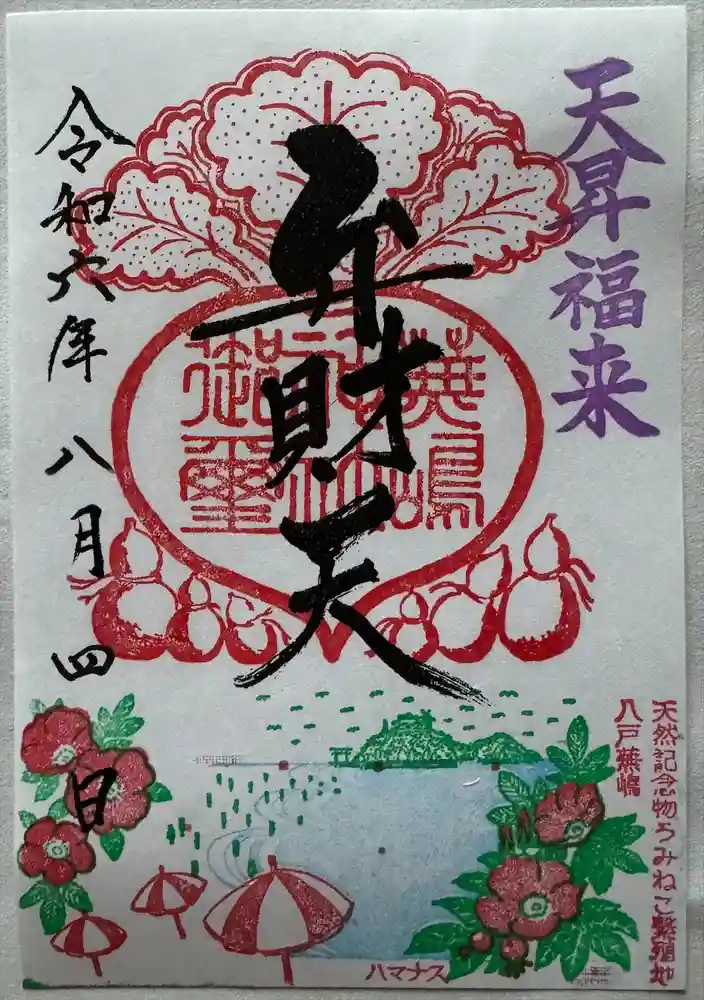 天昇福来
弁財天
蕪嶋
神社
御璽
令和六年 八月 四日
天然記念物うみねこ繁殖地
八戸蕪嶋
ハマナス